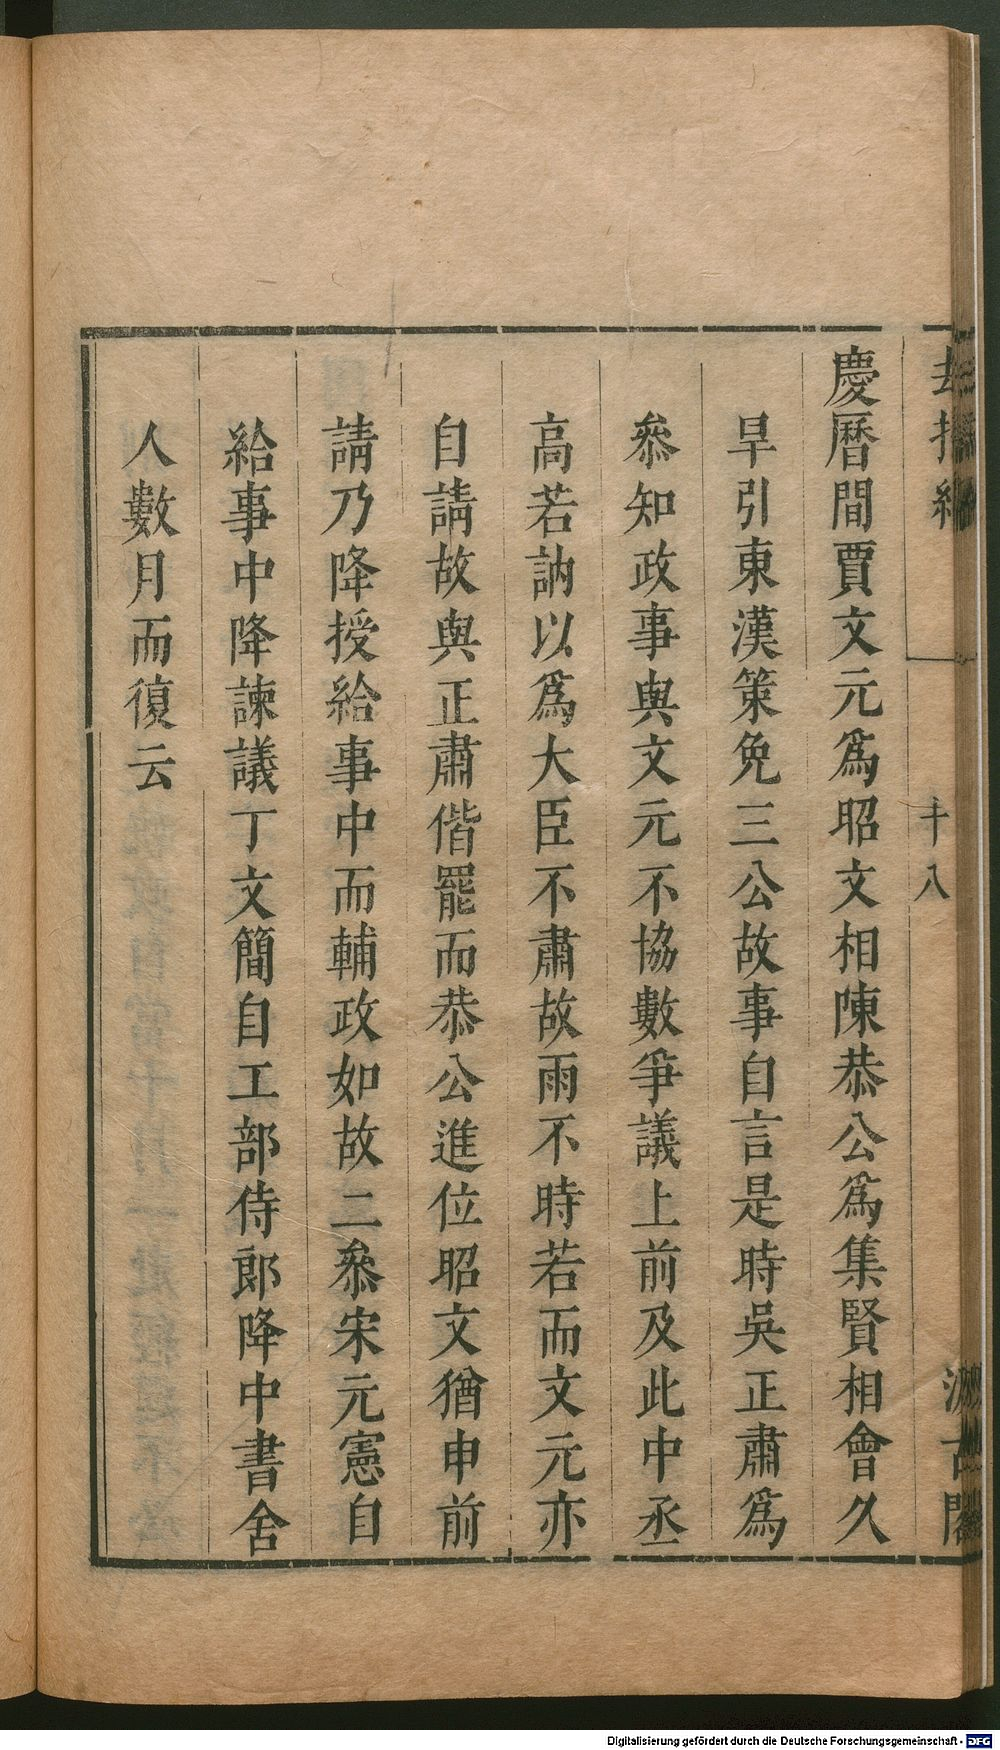 慶曆間賈文元爲昭文相陳恭公爲集賢相會久
旱引東漢策免三公故事自言是時吳正肅爲
叅知政事與文元不協數爭議上前及此中丞
高若訥以爲大臣不肅故雨不時若而文元亦
自請故與正肅偕罷而恭公進位昭文猶申前
請乃降授給事中而輔政如故二叅宋元憲自
給事中降諫議丁文簡自工部侍郎降中書舍
人數月而復云
十八
汲古閣
Digitalisierung gefördert durch die Deutsche Forschungsgemeinschaft - DFG